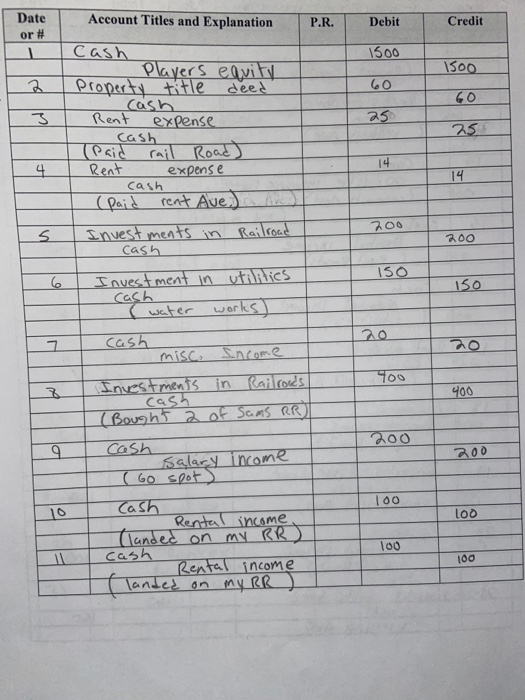 Date or # Account Titles and Explanation P.R. Debit Credit
1 Cash 1500
Players equity 1500
2 Property title deed 60
cash 60
3 Rent expense 25
cash 25
(Paid rail Road)
4 Rent expense 14
cash 14
(Paid rent Ave.)
5 Investments in Railroad 200
cash 200
6 Investment in utilities 150
cash 150
(water works)
7 cash 20
misc. Income 20
8 Investments in Railroads 400
cash 400
(Bought 2 of Sams RR)
9 cash 200
Salary income 200
(Go spot)
10 cash 100
Rental income 100
(landed on my RR)
11 cash 100
Rental income 100
(landed on my RR)